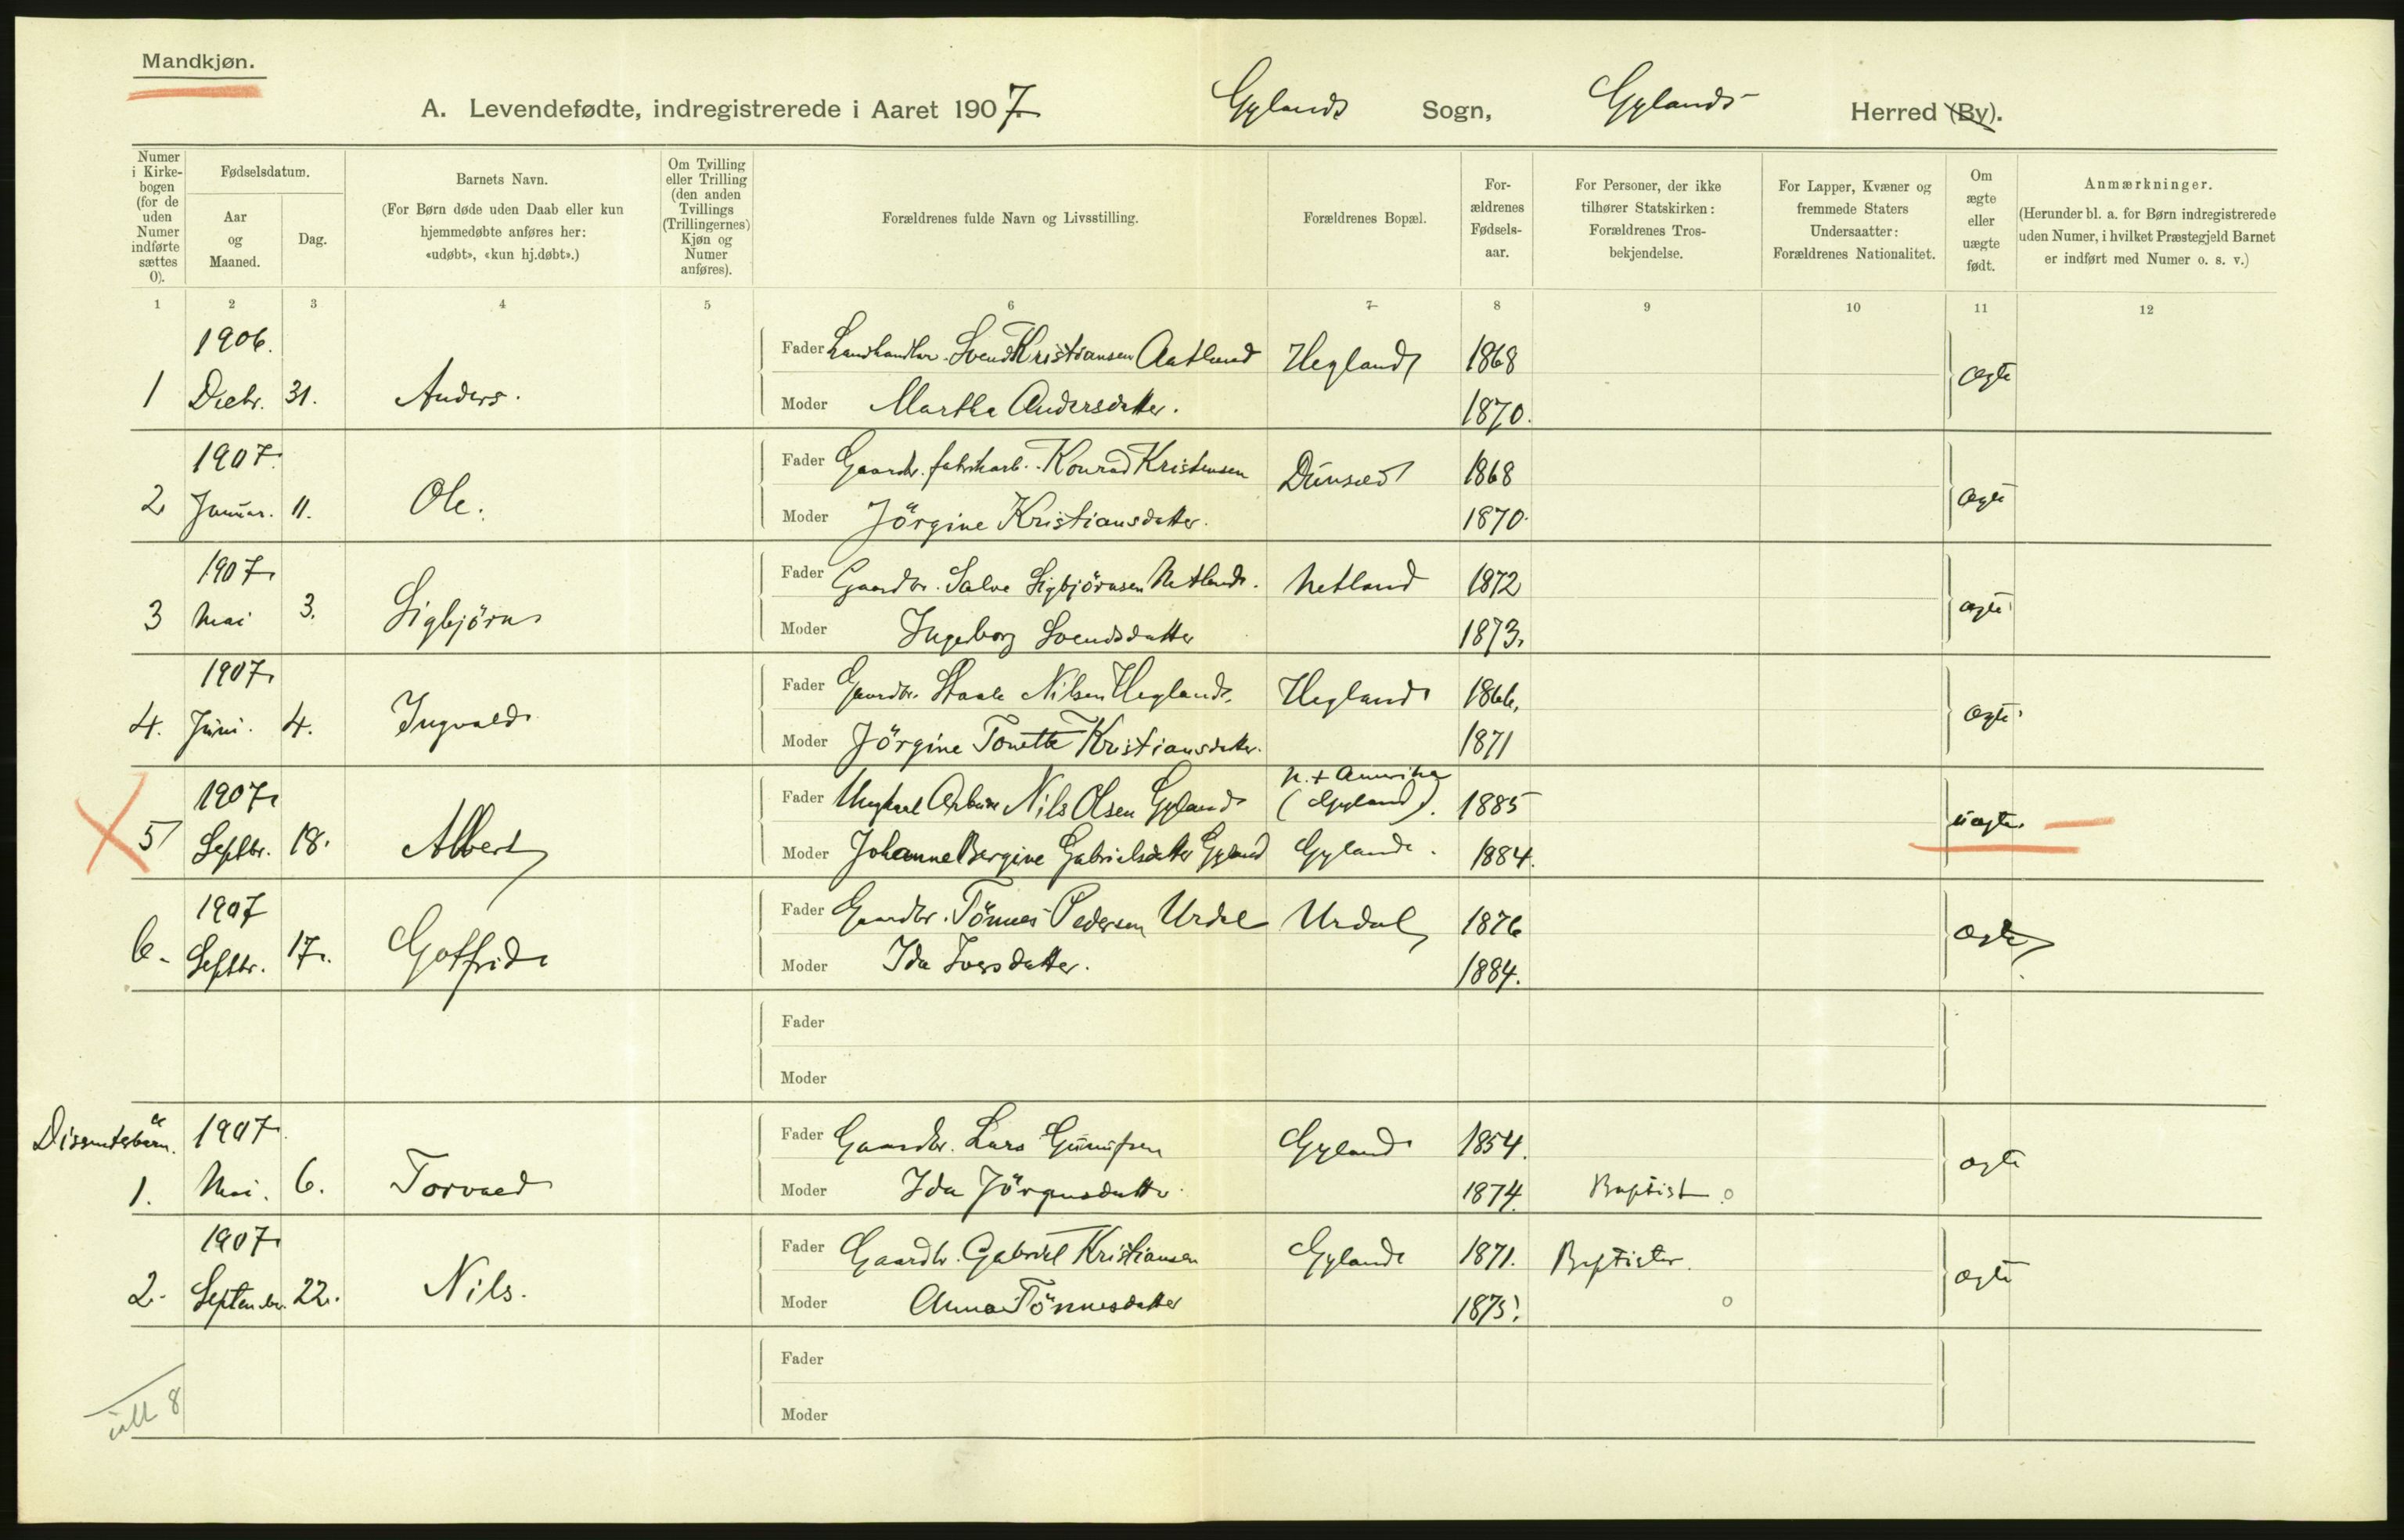 Mandkjøn.
A. Levendefødte, indregistrerede i Aaret 1907. Gylands Sogn, Gylands Herred (By).
Numer i Kirkebogen (for de uden Numer indførte sættes 0).
Fødselsdatum.
Aar og Maaned.
Dag.
Barnets Navn.
(For Børn døde uden Daab eller kun
hjemmedøbte anføres her:
«udøbt», «kun hj.døbt».)
Om Tvilling
eller Trilling
(den anden
Tvillings
(Trillingernes)
Kjøn og
Numer
anføres).
Forældrenes fulde Navn og Livsstilling.
Forældrenes Bopæl.
For-
ældrenes
Fødsels-
aar.
For Personer, der ikke
tilhører Statskirken:
Forældrenes Tros-
bekjendelse.
For Lapper, Kvæner og
fremmede Staters
Undersaatter:
Forældrenes Nationalitet.
Om
ægte
eller
uægte
født.
Anmærkninger.
(Herunder bl. a. for Børn indregistrerede
uden Numer, i hvilket Præstegjeld Barnet
er indført med Numer o. s. v.)
1 2 3 4 5 6 7 8 9 10 11 12
1906.
Fader Landhandler. Svend Kristiansen Aatland Hegland 1868
1 Decbr. 31. Anders. ægte
Moder Martha Andersdatter. 1870.
1907.
Fader Gaardbr. fabrikarb. Konrad Kristensen Dunsæd 1868
2 Januar. 11. Ole. ægte
Moder Jörgine Kristiansdatter. 1870.
1907.
Fader Gaardbr. Salve Sigbjörnsen Netland. Netland 1872
3 Mai 3. Sigbjörn ægte
Moder Ingeborg Svendsdatter 1873.
1907.
Fader Gaardbr. Staale Nilsen Hegland. Hegland 1866.
4. Juni. 4. Ingvald ægte
Moder Jörgine Tonette Kristiansdatter. 1871
1907.
N. + Amerika
Fader Ungkarl Arbeider Nils Olsen Gyland (Gyland). 1885
5 Septbr. 18. Albert uægte.
Moder Johanne Bergine Gabrielsdatter Gyland Gyland. 1884.
1907
Fader Gaardbr. Tönnes Pedersen Urdal Urdal 1876
6. Septbr. 17. Gotfrid ægte
Moder Ida Iversdatter. 1884.
Fader
Moder
Dissenterbørn. 1907.
Fader Gaardbr. Lars Gunufsen Gyland 1854.
1. Mai. 6. Torvald ægte
Moder Ida Jörgensdatter 1874. Baptist
1907.
Fader Gaardbr. Gabriel Kristiansen Gyland 1871. Baptister.
2. September. 22. Nils. ægte
Moder Anna Tönnesdatter 1875.
Fader
Moder
ialt 8